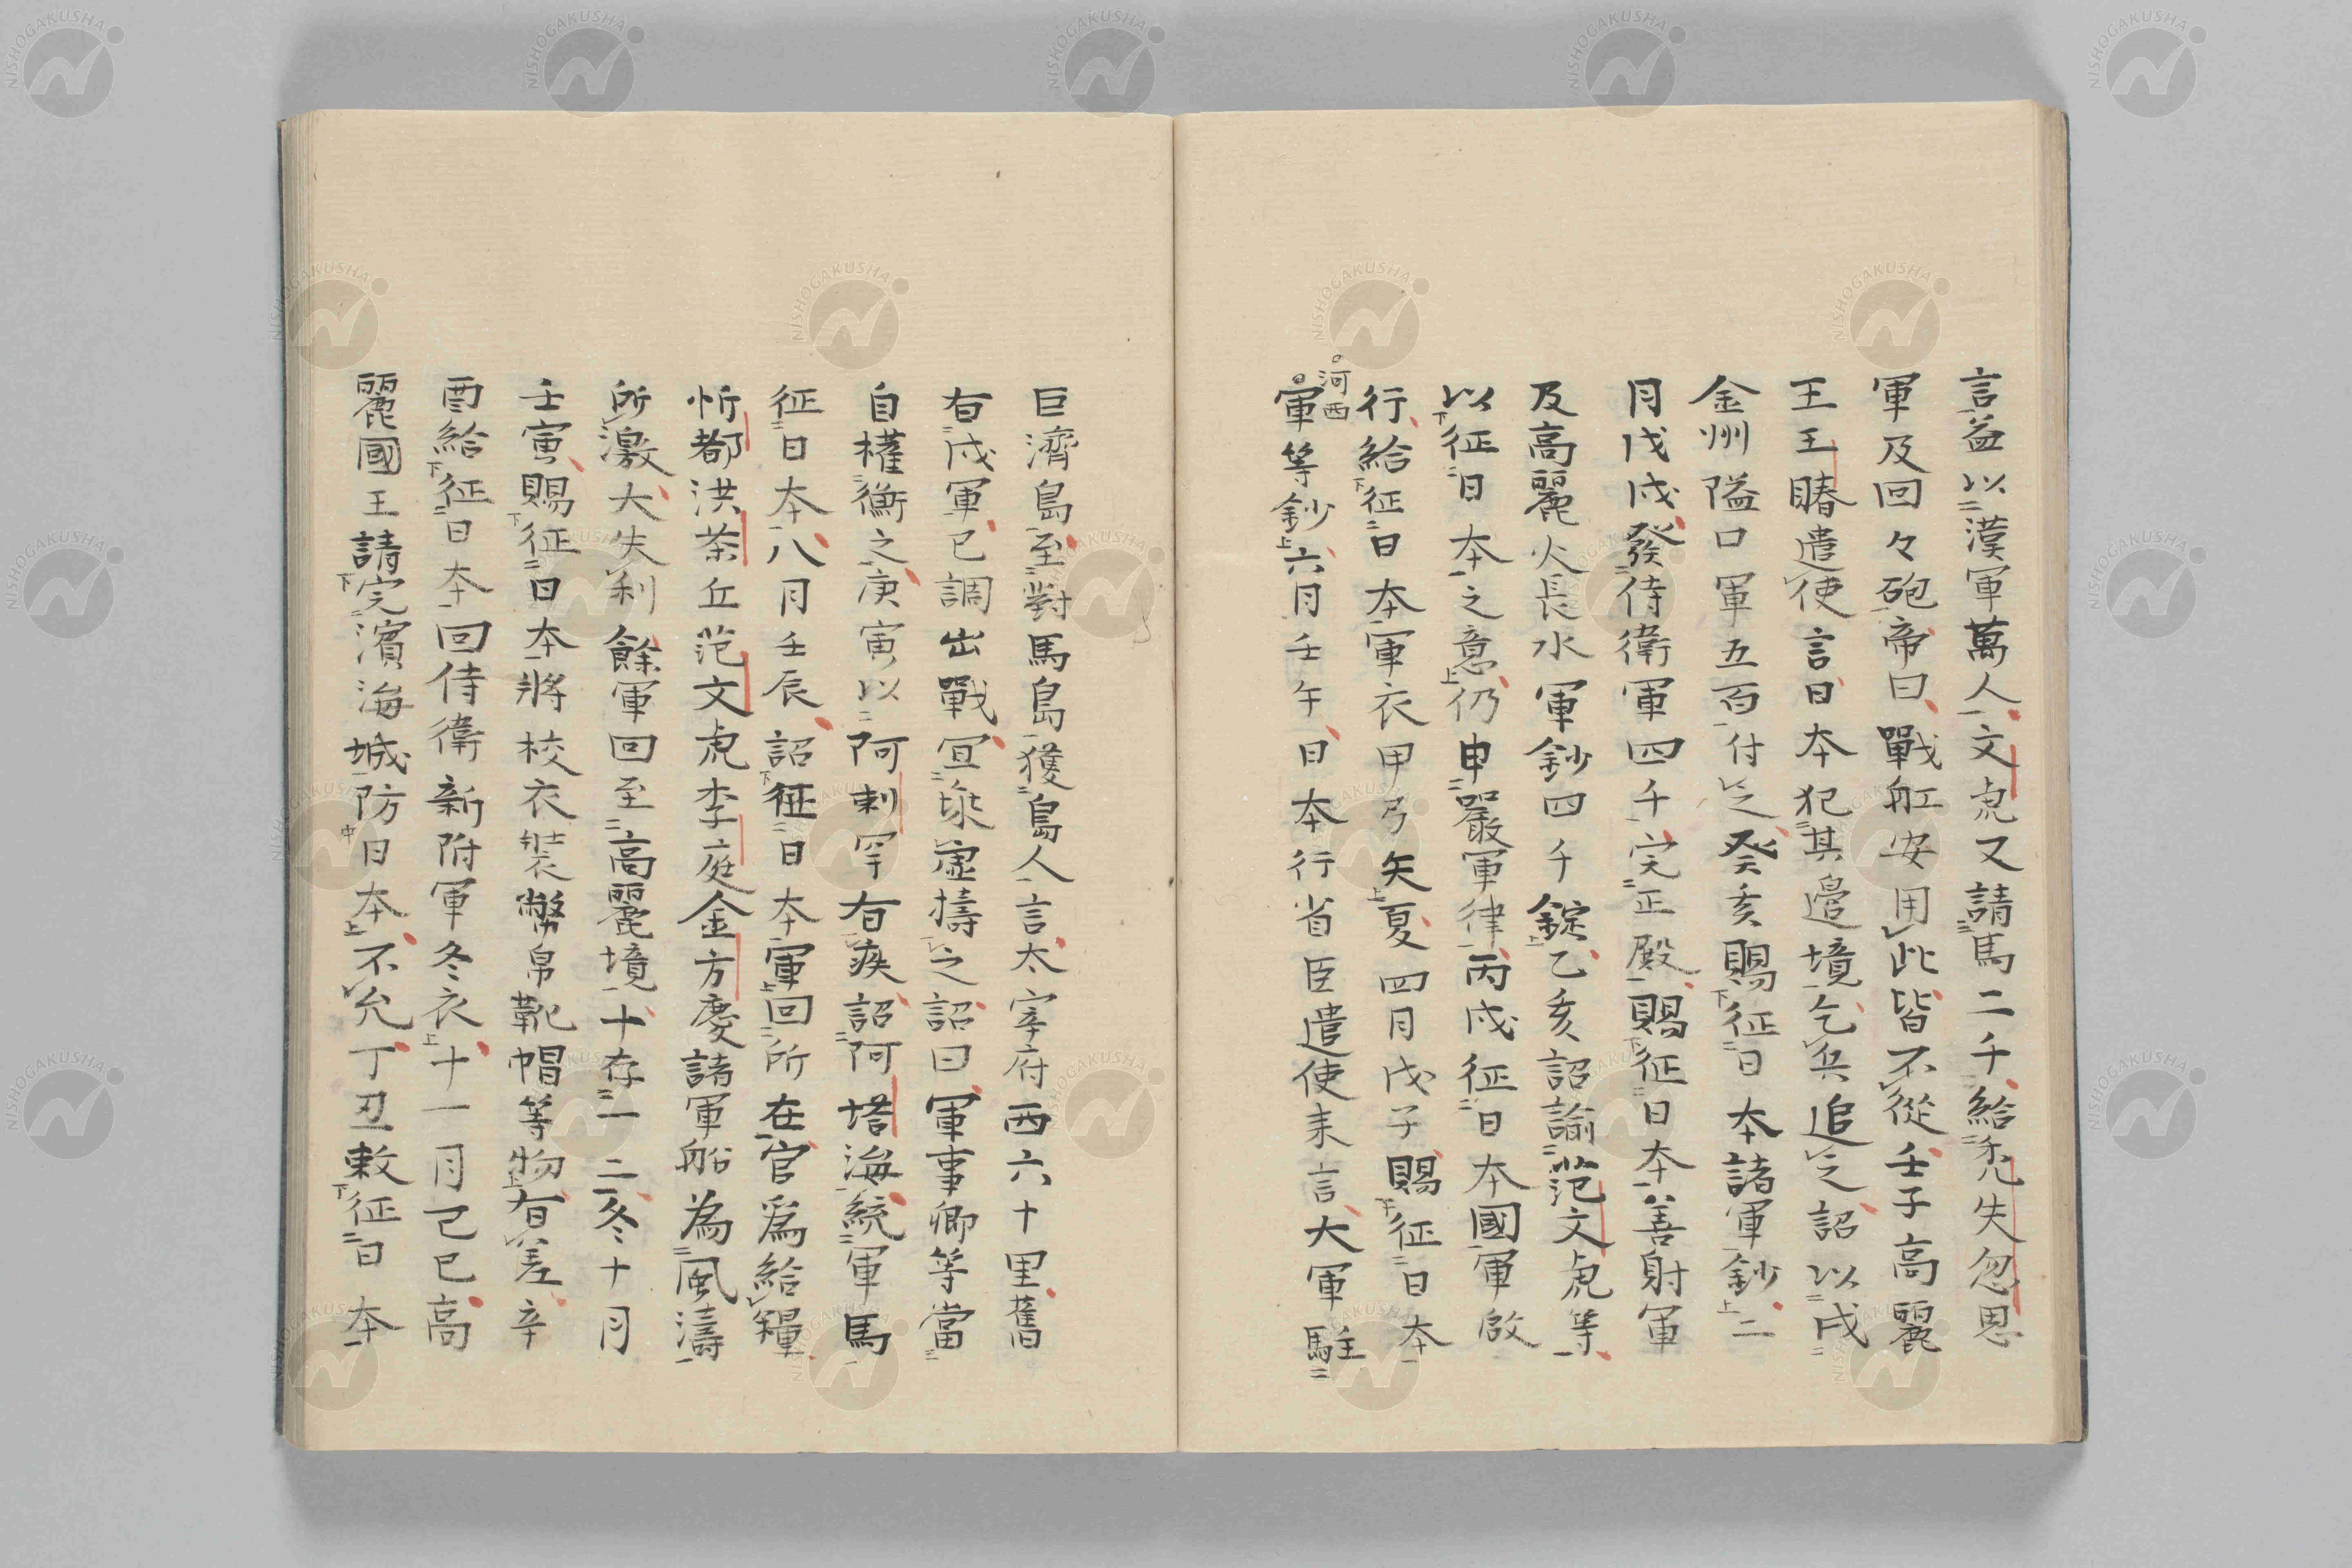 言益以漢軍萬人文虎又請馬二千給禿失忽思
軍及回々砲帝曰戰舡安用此皆不從壬子高麗
王王賰遣使言日本犯其邉境乞兵追之詔以戍
金州隘口軍五百付之癸亥賜征日本諸軍鈔二
月戊戌發侍衛軍四千完正殿賜征日本善射軍
及高麗火長水軍鈔四千錠乙亥詔諭范文虎等
以征日本之意仍申嚴軍律丙戌征日本國軍啟
行給征日本軍衣甲弓矢夏四月戊子賜征日本
河西
軍等鈔六月壬午日本行省臣遣使来言大軍駐
巨濟島至對馬島獲島人言太宰府西六十里舊
有戍軍已調出戰宜乗虛擣之詔曰軍事卿等當
自權衡之庚寅以阿剌罕有疾詔阿塔海統軍馬
征日本八月壬辰詔征日本軍回所在官爲給糧
忻都洪茶丘范文虎李庭金方慶諸軍船為風濤
所激大失利餘軍回至高麗境十存一二冬十月
壬寅賜征日本將校衣裝幣帛靴帽等物有差辛
酉給征日本回侍衛新附軍冬衣十一月己巳高
麗國王請完濱海城防日本不允丁丑敕征日本